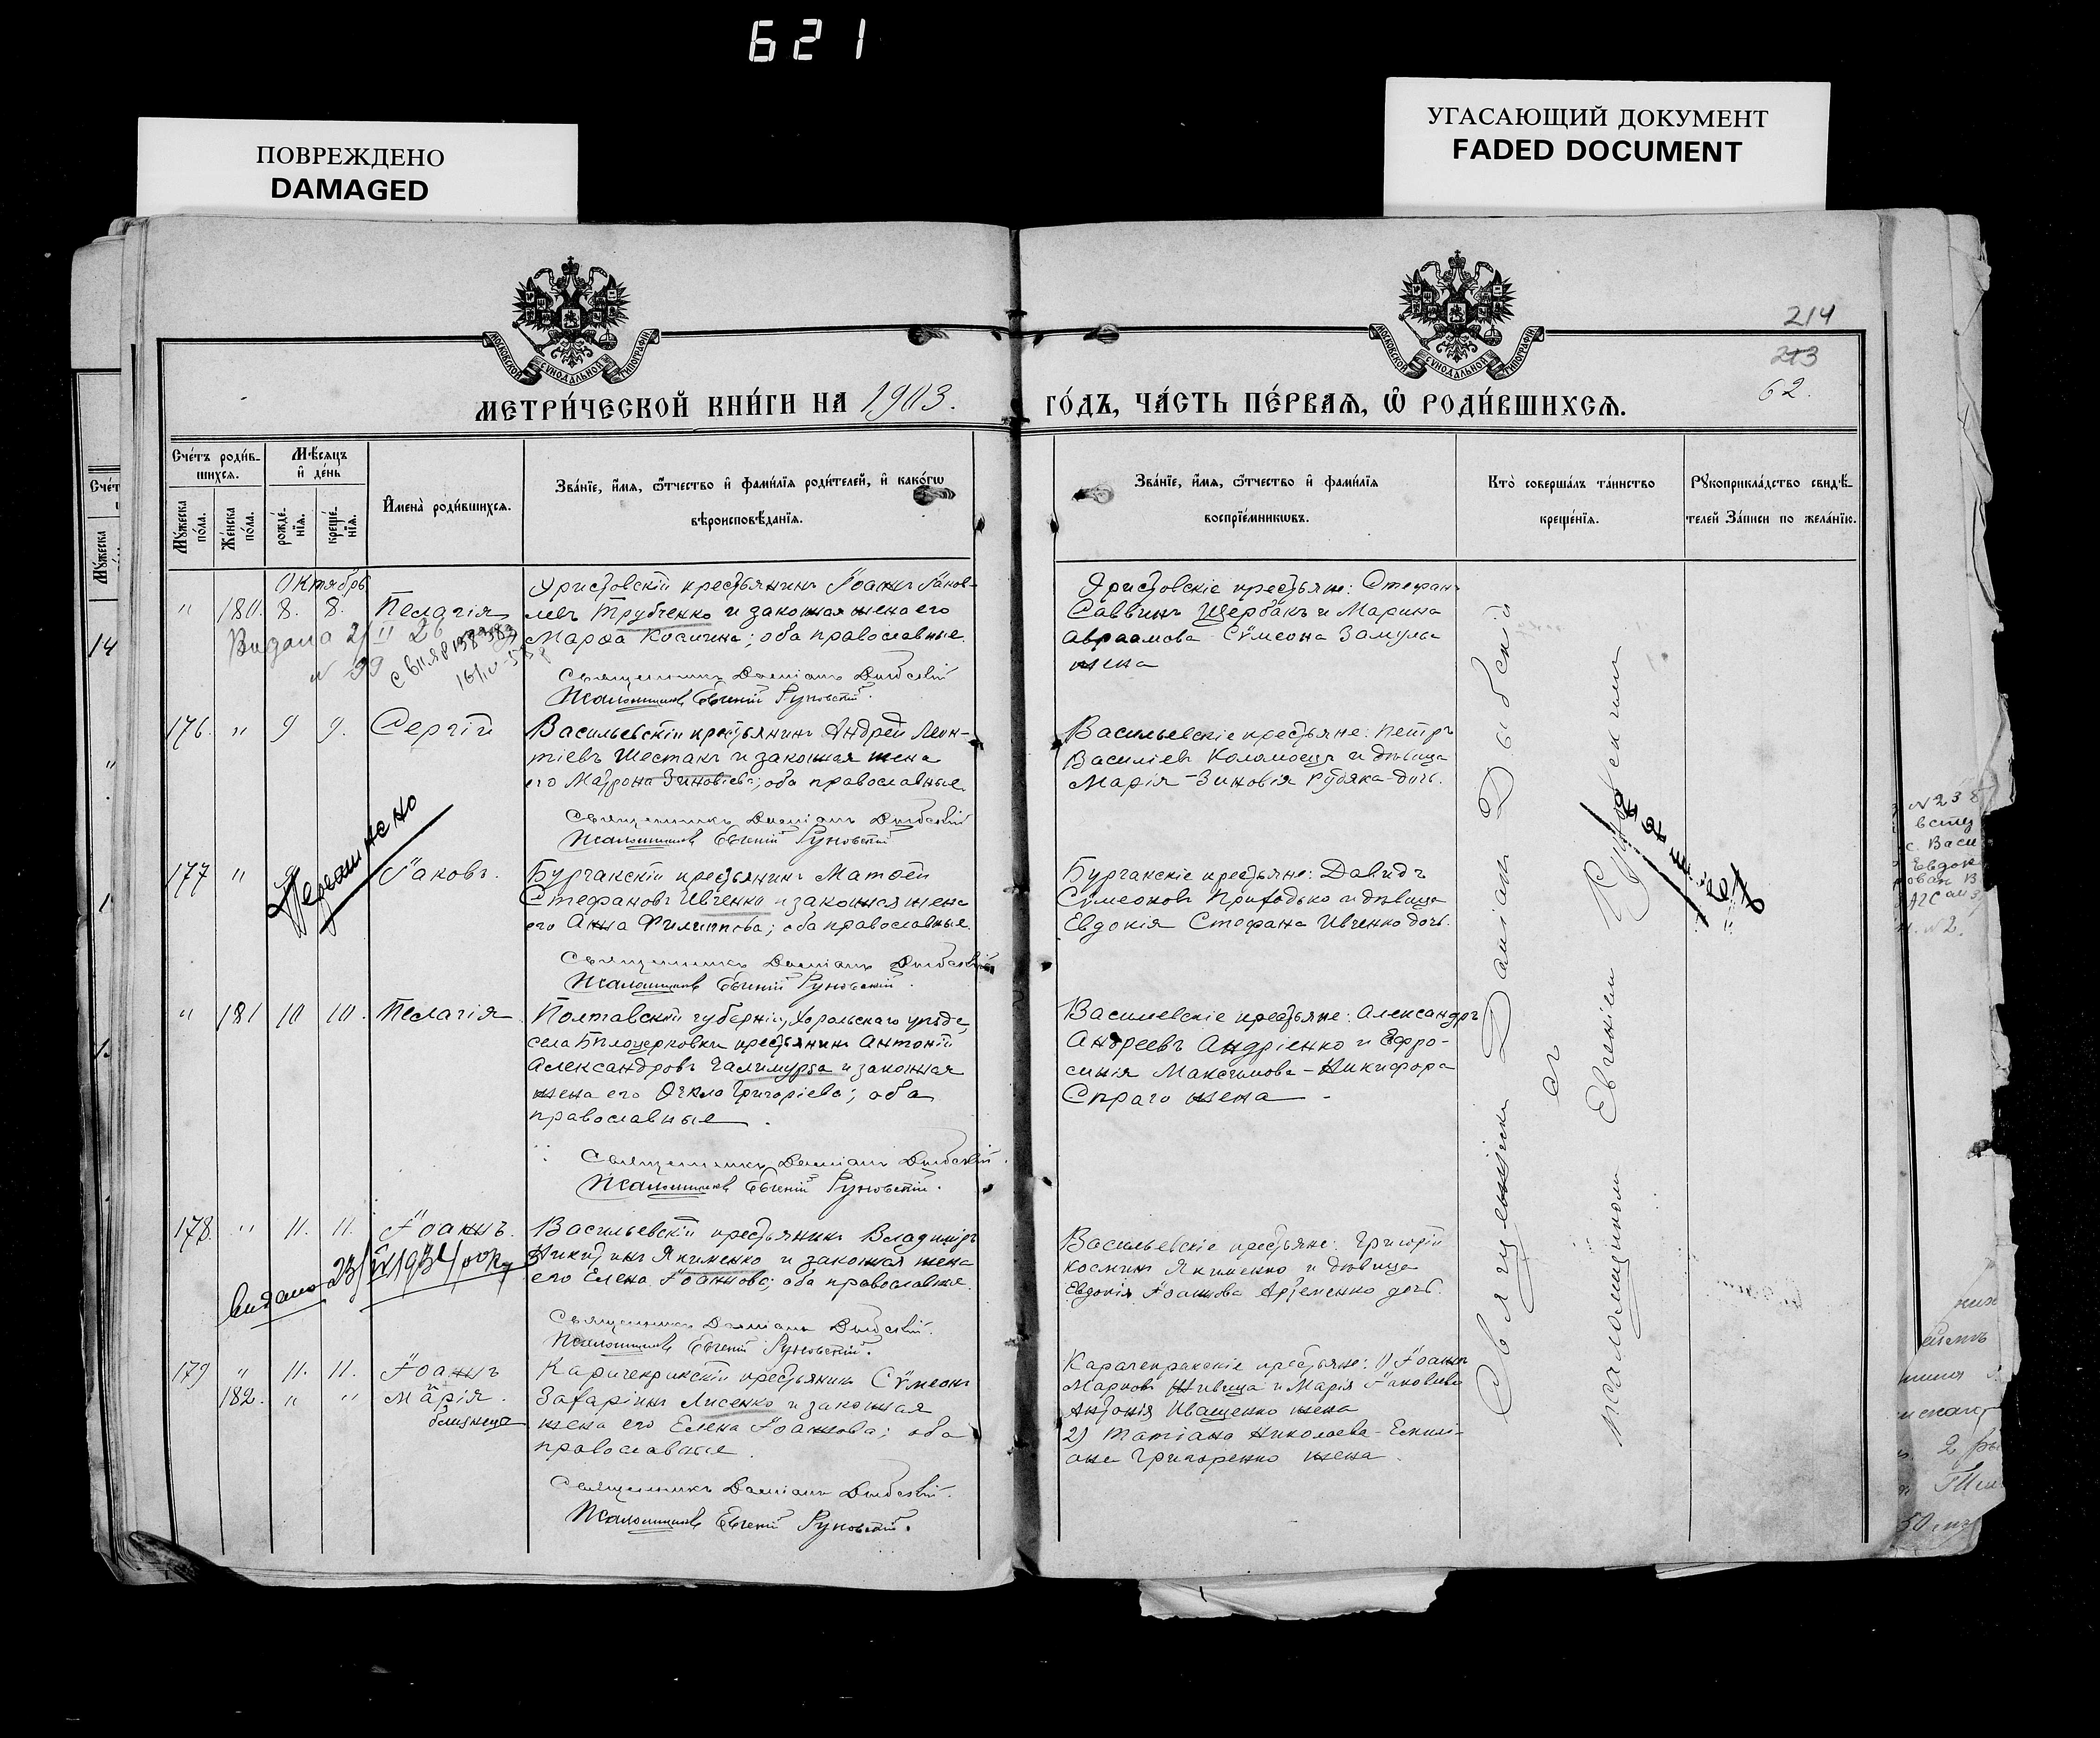 621
ПОВРЕЖДЕНО
DAMAGED
УГАСАЮЩИЙ ДОКУМЕНТ
FADED DOCUMENT
МОСКОВСКОЙ СѴНОДАЛЬНОЙ ТИПОГРАФІИ
МОСКОВСКОЙ СѴНОДАЛЬНОЙ ТИПОГРАФІИ
214
213
62.
МЕТРИ́ЧЕСКОЙ КНИ́ГИ НА 1903.
ГО́ДЪ, ЧА́СТЬ ПЕ́РВАЯ, Ѡ҆ РОДИ́ВШИХСЯ.
Сче́тъ роди́в-
шихся.
Мꙋжеска по́ла.
Же́нска по́ла.
Мѣ́сяцъ
и҆ де́нь
рожде́-
нїѧ.
креще́-
нїѧ.
И҆мена̀ роди́вшихся.
Зва́нїе, и҆́мя, ѻ҆́тчество и҆ фами́лїя роди́телей, и҆ како́гѡ
вѣроисповѣ́данїѧ.
Зва́нїе, и҆́мя, ѻ҆́тчество и҆ фами́лїя
воспрїе́мникѡвъ.
Кто̀ соверша́лъ та́инство
креще́нїѧ.
Рꙋкоприкла́дство свидѣ́-
телей За́писи по жела́нїю.
Октябрь
" 180. 8. 8. Пелагія
Христовскій крестьянинъ Іоаннъ Іаков-
левъ Трубченко и законная жена его
Марѳа Космина; оба православные.
Священникъ Даміанъ Дыбскій
Псаломщикъ Евгеній Руновскій.
Христовскіе крестьяне: Стефанъ
Саввинъ Щербакъ и Марина
Авраамова Сѵмеона Замулы
жена
176. " 9 9. Сергій
Васильевскій крестьянинъ Андрей Леон-
тіевъ Шестакъ и законная жена
его Матрона Зиновіева; оба православные.
Священникъ Даміанъ Дыбскій
Псаломщикъ Евгеній Руновскій
Васильевскіе крестьяне: Петръ
Василіевъ Коломоецъ и дѣвица
Марія - Зиновія Рубяка дочь.
177 " Іаковъ.
Бурчакскій крестьянинъ Матѳей
Стефановъ Ивченко и законная жена
его Анна Филиппова; оба православные.
Священникъ Даміанъ Дыбскій
Псаломщикъ Евгеній Руновскій.
Бурчакскіе крестьяне: Давидъ
Сѵмеоновъ Приходько и дѣвица
Евдокія Стефана Ивченко дочь.
" 181 10 10. Пелагія
Полтавской губерніи, Хорольскаго уѣзда,
села Бѣлоцерковки крестьянинъ Антоній
Александровъ Галимурза и законная
жена его Ѳекла Григоріева; оба
православные.
Священникъ Даміанъ Дыбскій.
Псаломщикъ Евгеній Руновскій.
Василевскіе крестьяне: Александръ
Андреевъ Андріенко и Ефро-
синія Максимова - Никифора
Спраго жена
178. " 11. 11. Іоаннъ.
Васильевскій крестьянинъ Владиміръ
Никитинъ Якименко и законная жена
его Елена Іоаннова; оба православные.
Священникъ Даміанъ Дыбскій.
Псаломщикъ Евгеній Руновскій.
Васильевскіе крестьяне: Григорій
Косминъ Якименко и дѣвица
Евдокія Іоаннова Артеменко дочь.
179 " 11. 11. Іоаннъ
182. " " Марія.
близнецы
Карачекракскій крестьянинъ Сѵмеонъ
Захаріинъ Лисенко и законная
жена его Елена Іоаннова; оба
православные
Священникъ Даміанъ Дыбскій.
Псаломщикъ Евгеній Руновскій.
Карачекракскіе крестьяне: 1) Іоаннъ
Марковъ Живица и Марія Іаковлева
Антонія Иващенко жена
2) Татіана Николаева - Емилі-
ана Григоренко жена.
Священникъ Даміанъ Дыбскій
съ
псаломщикомъ Евгеніемъ Руновскимъ